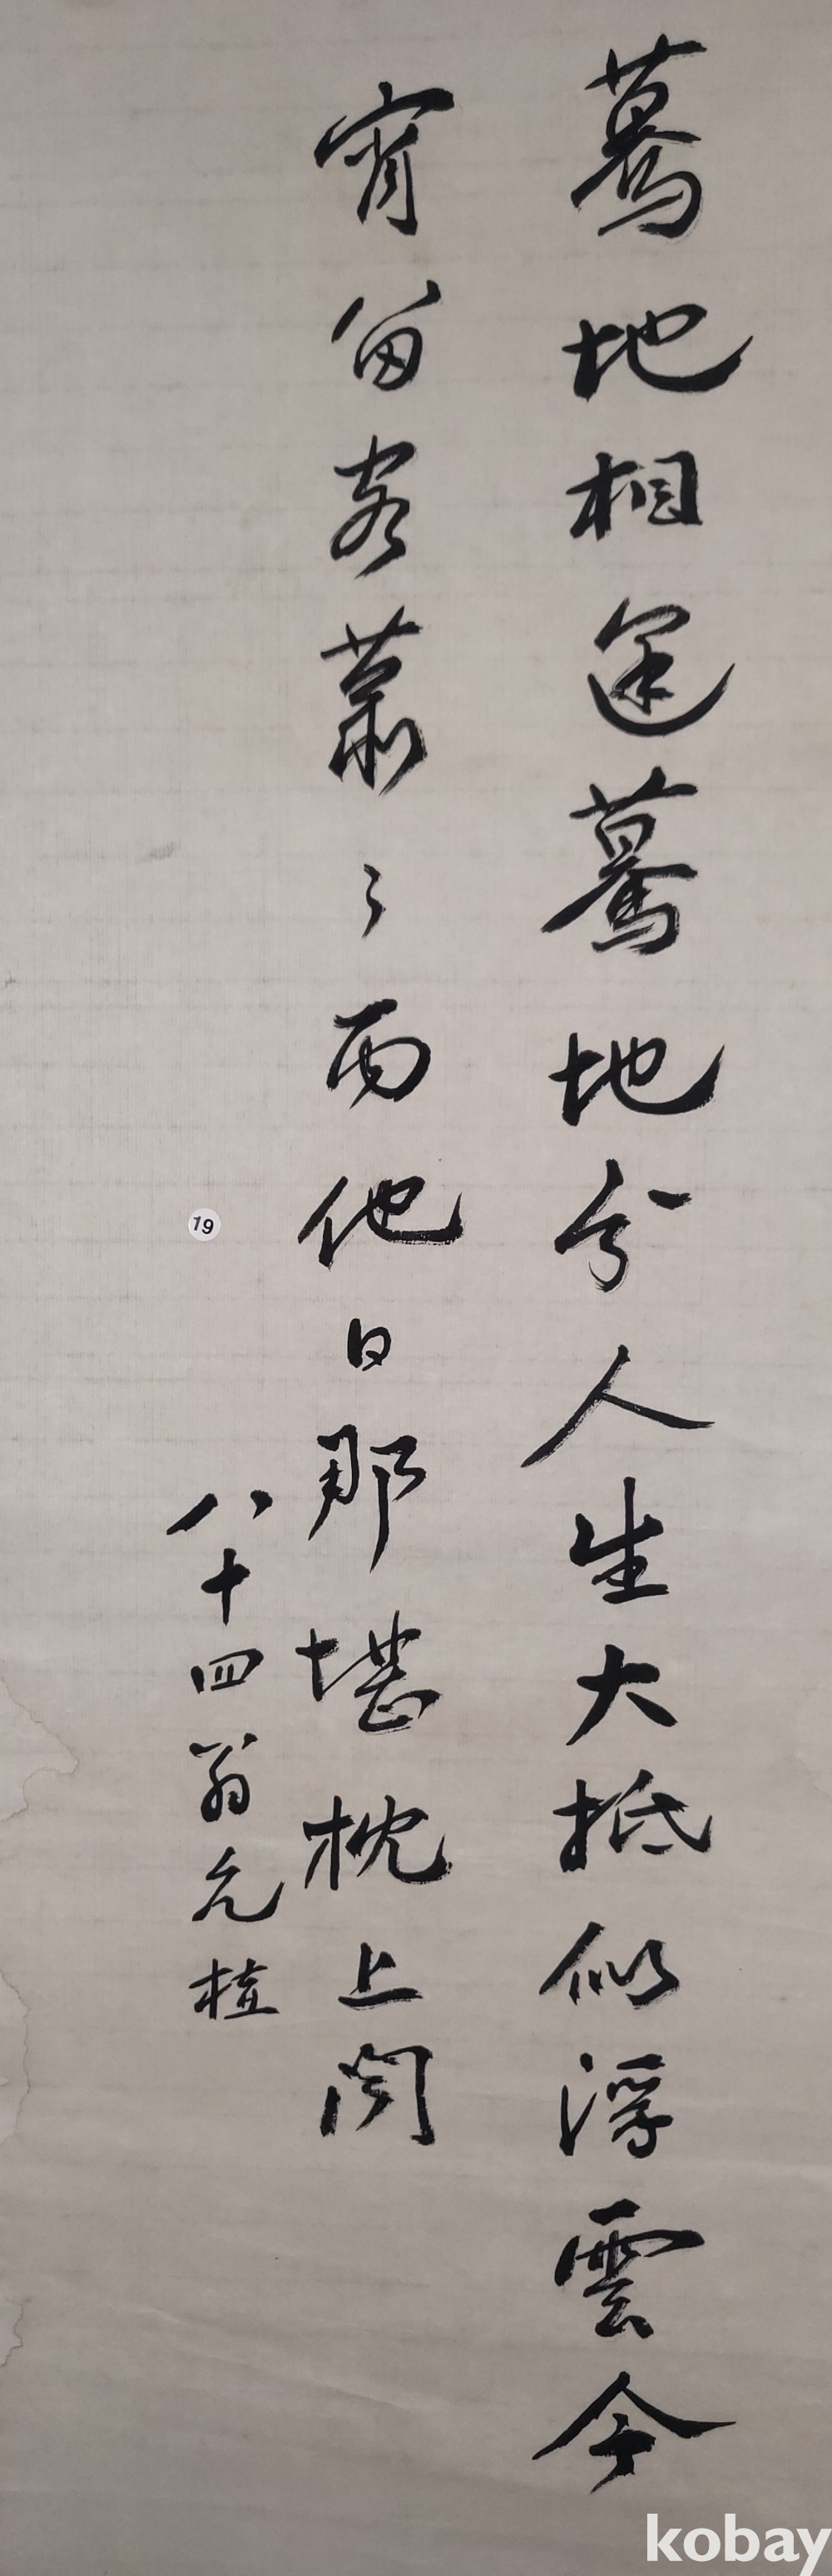 驀地相逢驀地分人生大抵似浮雲今
宵留客蕭々雨他日那堪枕上聞
八十四翁允植
19
kobay